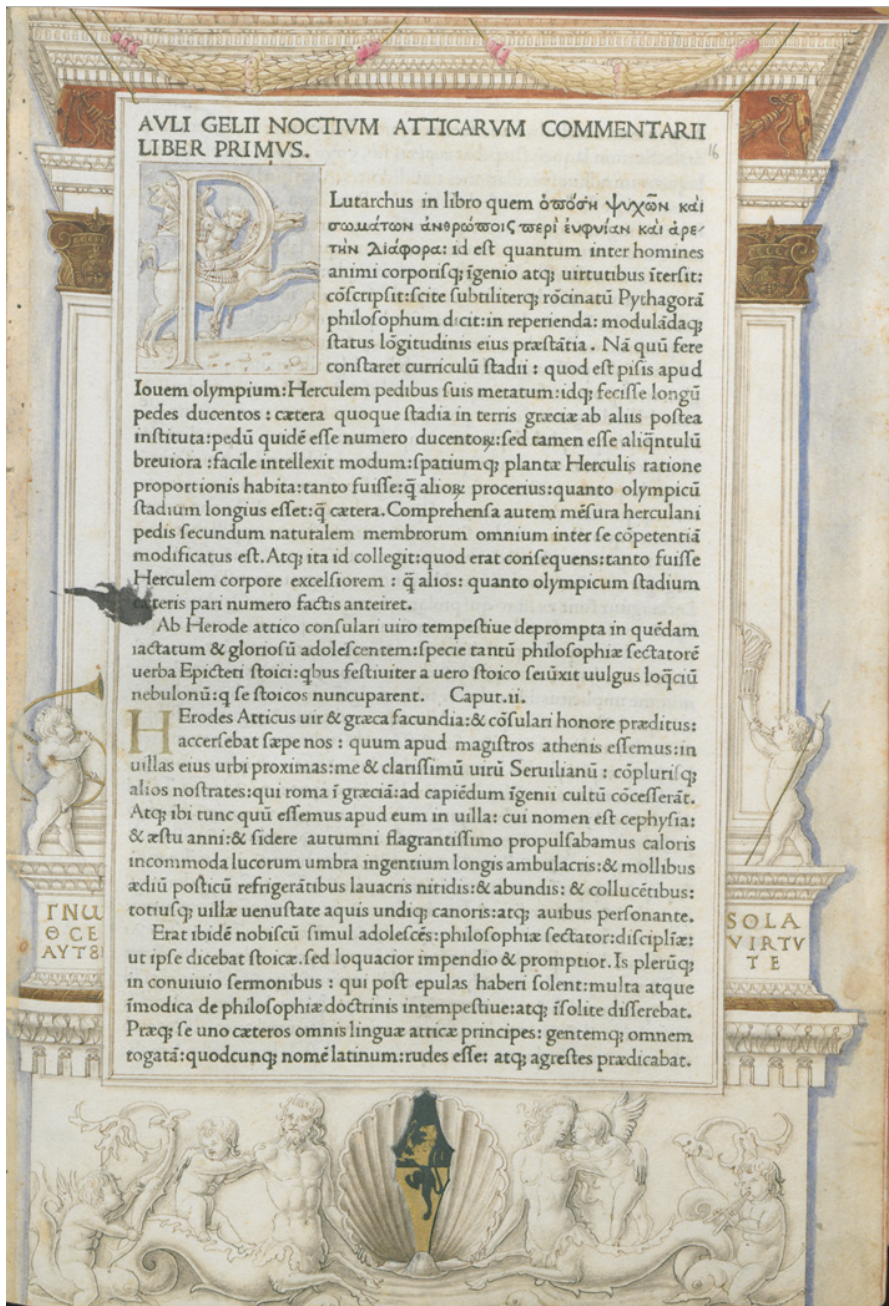 AVLI GELII NOCTIVM ATTICARVM COMMENTARII
LIBER PRIMVS.
16
PLutarchus in libro quem ὁπόση ψυχῶν καὶ
σωμάτων ἀνθρώποις περὶ ἐυφυίαν καὶ ἀρε-
τὴν Διάφορα: id eſt quantum inter homines
animi corporiſq; īgenio atq; uirtutibus īterſit:
cōſcripſit:ſcite ſubtiliterq; rōcinatū Pythagorā
philoſophum dicit:in reperienda: modulādaq;
ſtatus lōgitudinis eius præſtātia. Nā quū fere
conſtaret curriculū ſtadii : quod eſt piſis apud
Iouem olympium:Herculem pedibus ſuis metatum:idq; feciſſe longū
pedes ducentos : cætera quoque ſtadia in terris græciæ ab aliis poſtea
inſtituta:pedū quidē eſſe numero ducentoꝝ:ſed tamen eſſe aliq̄ntulū
breuiora :facile intellexit modum:ſpatiumq; plantæ Herculis ratione
proportionis habita:tanto fuiſſe:q̄ alioꝝ procerius:quanto olympicū
ſtadium longius eſſet:q̄ cætera.Comprehenſa autem mēſura herculani
pedis ſecundum naturalem membrorum omnium inter ſe cōpetentiā
modificatus eſt.Atq; ita id collegit:quod erat conſequens:tanto fuiſſe
Herculem corpore excelſiorem : q̄ alios: quanto olympicum ſtadium
cæteris pari numero factis anteiret.
Ab Herode attico conſulari uiro tempeſtiue deprompta in quēdam
iactatum & glorioſū adoleſcentem:ſpecie tantū philoſophiæ ſectatorē
uerba Epicteti ſtoici:qbus feſtiuiter a uero ſtoico ſeiūxit uulgus loq̄ciū
nebulonū:q ſe ſtoicos nuncuparent. Caput.ii.
HErodes Atticus uir & græca facundia:& cōſulari honore præditus:
accerſebat ſæpe nos : quum apud magiſtros athenis eſſemus:in
uillas eius urbi proximas:me & clariſſimū uirū Seruilianū : cōpluriſq;
alios noſtrates:qui roma ī græciā:ad capiēdum īgenii cultū cōceſſerāt.
Atq; ibi tunc quū eſſemus apud eum in uilla: cui nomen eſt cephyſia:
& æſtu anni:& ſidere autumni flagrantiſſimo propulſabamus caloris
incommoda lucorum umbra ingentium longis ambulacris:& mollibus
ædiū poſticū refrigerātibus lauacris nitidis:& abundis: & collucētibus:
totiuſq; uillæ uenuſtate aquis undiq; canoris:atq; auibus perſonante.
Erat ibidē nobiſcū ſimul adoleſcēs:philoſophiæ ſectator:diſciplīæ:
ut ipſe dicebat ſtoicæ.ſed loquacior impendio & promptior.Is plerūq;
in conuiuio ſermonibus : qui poſt epulas haberi ſolent:multa atque
īmodica de philoſophiæ doctrinis intempeſtiue:atq; īſolite diſſerebat.
Præq; ſe uno cæteros omnis linguæ atticæ principes: gentemq; omnem
togatā:quodcunq; nomē latinum:rudes eſſe: atq; agreſtes prædicabat.
ΓΝΩ
Θ CE
ΑΥΤ8
SOLA
VIRTV
TE